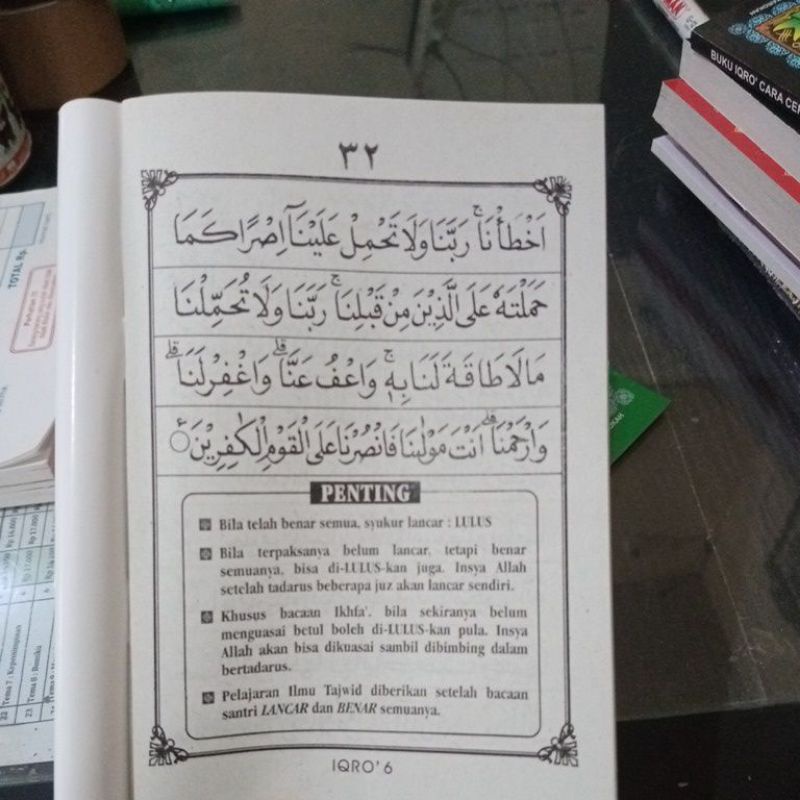 ٣٢
اَخْطَأْنَا ۚ رَبَّنَا وَلَا تَحْمِلْ عَلَيْنَآ اِصْرًا كَمَا
حَمَلْتَهٗ عَلَى الَّذِيْنَ مِنْ قَبْلِنَا ۚ رَبَّنَا وَلَا تُحَمِّلْنَا
مَا لَا طَاقَةَ لَنَا بِهٖ ۚ وَاعْفُ عَنَّا ۗ وَاغْفِرْ لَنَا ۗ
وَارْحَمْنَا ۗ اَنْتَ مَوْلٰىنَا فَانْصُرْنَا عَلَى الْقَوْمِ الْكٰفِرِيْنَ ۝
PENTING
Bila telah benar semua, syukur lancar : LULUS
Bila terpaksanya belum lancar, tetapi benar
semuanya, bisa di-LULUS-kan juga. Insya Allah
setelah tadarus beberapa juz akan lancar sendiri.
Khusus bacaan Ikhfa', bila sekiranya belum
menguasai betul boleh di-LULUS-kan pula. Insya
Allah akan bisa dikuasai sambil dibimbing dalam
bertadarus.
Pelajaran Ilmu Tajwid diberikan setelah bacaan
santri LANCAR dan BENAR semuanya.
IQRO' 6
BUKU IQRO' CARA CE
TOTAL Rp